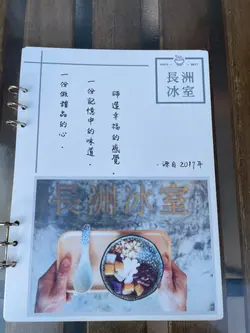 長洲
冰室
幸福的感覺。
一份記憶中的味道。
一份做甜品的心。
·源自2017年
長洲冰室